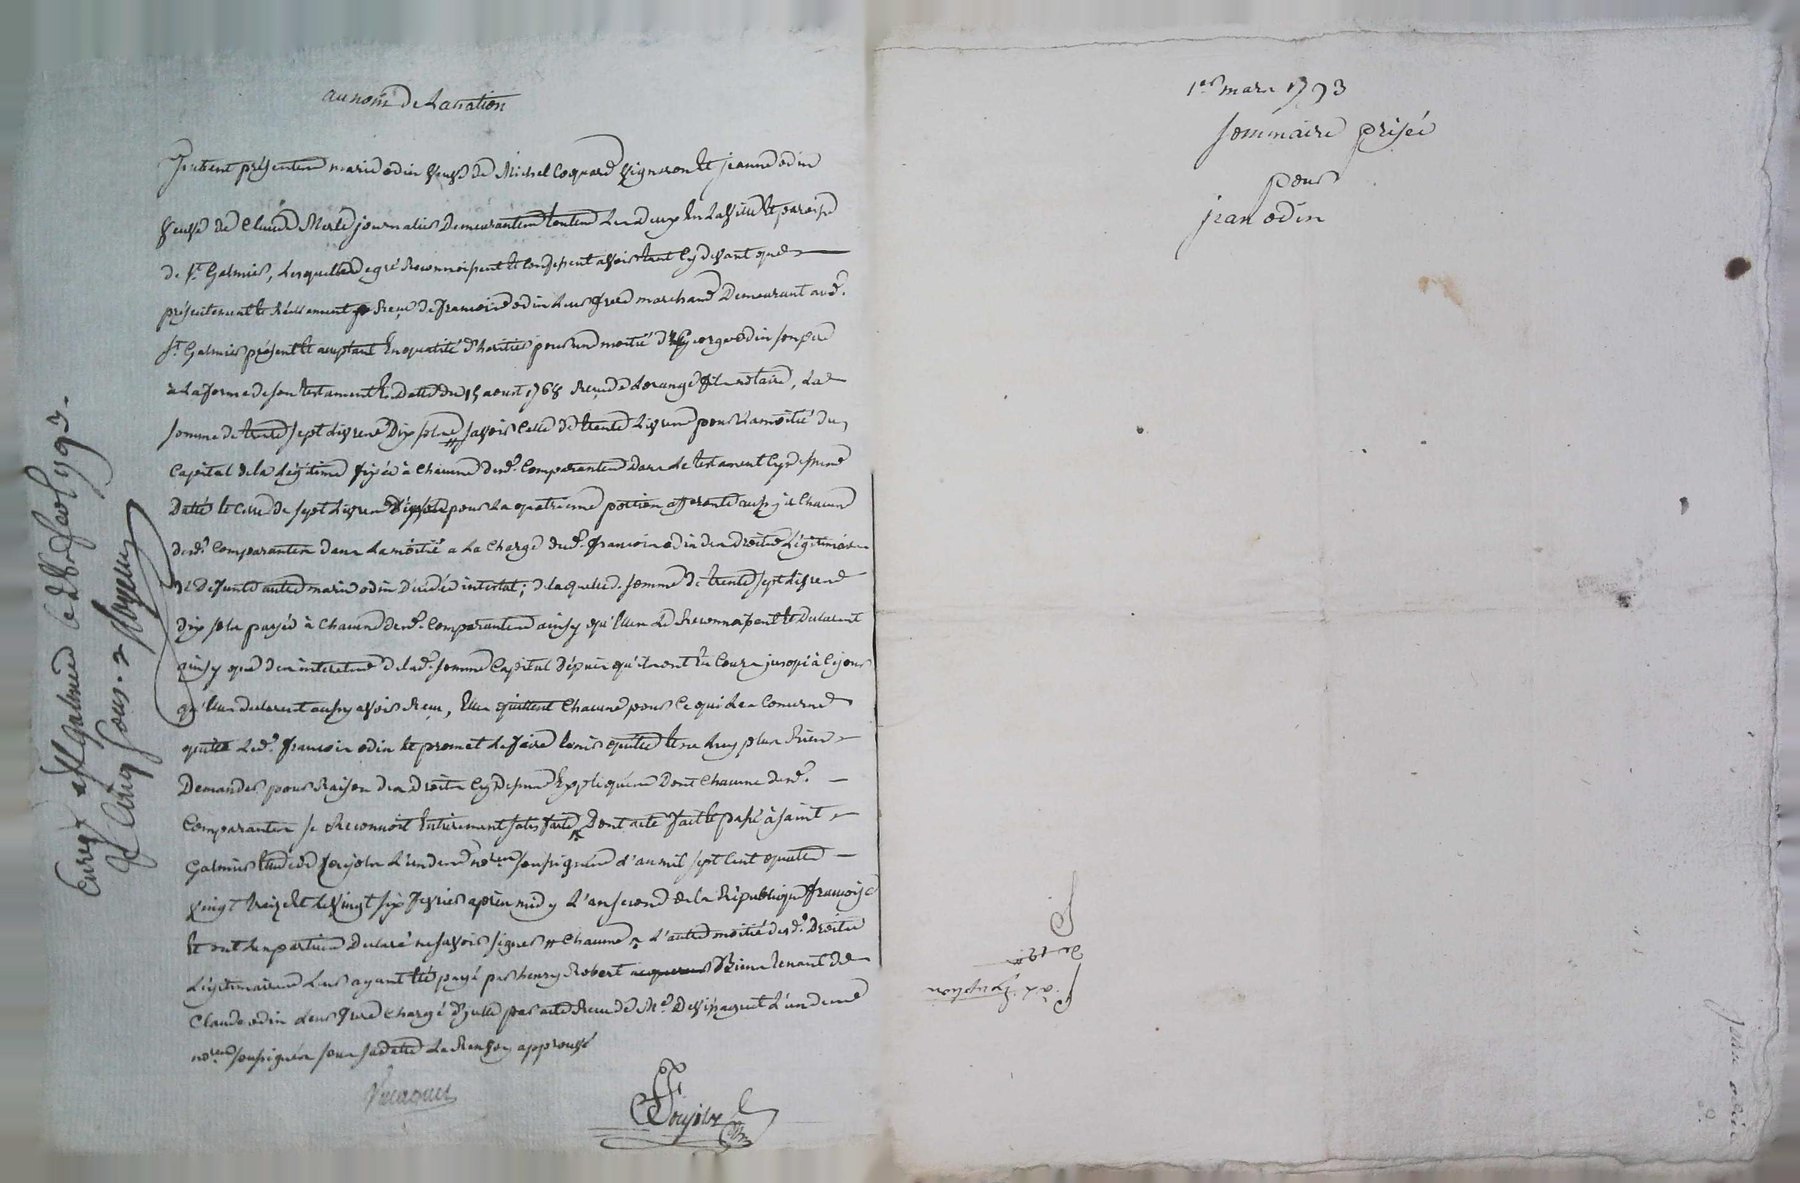 au nom de La nation
furent présentes marie odin veuve de Michel Coquard vigneron et jeanne odin
veuve de Claude Merle journalier Demeurantes toutes Les deux En La ville et paroisse
de St. Galmier, Lesquelles de gré Reconnoissent et Confessent avoir tant cy devant que
présentement et Réellement Reçu de francois odin Leur frere marchand Demeurant aud.
St. Galmier présent et acceptant En qualité d'héritier pour une moitié de George odin son pere
à La forme de son testament En datte du 15 aoust 1768 Reçu de Lorange fils notaire, La
somme de trente sept Livres Dix sols savoir Celle de trente Livres pour La moitié du
Capital de la Légitime fixée à Chacune desd. Comparantes Dans Le testament Cy dessus
Datté et Celle de sept Livres dix sols pour La quatrieme portion afferante aussy à Chacune
desd. Comparantes dans La moitié a La Charge dud. francois odin des Droits Légitimaires
de Defunte autre marie odin Décédée intestat; de laquelle somme de trente sept Livres
Dix sols payée à Chacune desd. Comparantes ainsy qu'Elles Le Reconnoissent et Declarent
ainsy que des interets de lad. somme Capital depuis qu'ils ont Eu Cours jusqu'à Ce jour
qu'Elles declarent aussy avoir Reçu, Elles quittent Chacune pour Ce qui Les Concerne
quitte Led. francois odin et promet Le faire tenir quitte et ne Luy plus Rien
Demander pour Raison des Droits Cy dessus Expliqués Dont Chacune desd.
Comparantes se Reconnoit Entierement satisfaite Dont acte fait et passé à saint
Galmier Etude de Soujols L'un des nores soussignés L'an mil sept Cent quatre
vingt treize Et Le vingt six fevrier après midy L'an second de la République francoise
Et ont Les parties Declaré ne savoir signer // Chacune L'autre moitié desd. Droits
Légitimaires Leur ayant Eté payé par henry Robert Biens tenant de
Claude odin Leur frere Chargé d'Icelle par acte Reçu de Me. Devinagent L'un des
nores soussignés sous sa datte Le Renvoy approuvé
Soujols
Enregé a St Galmier le 28 fev 1793.
1er mars 1793
sommaire prisée
pour
jean odin